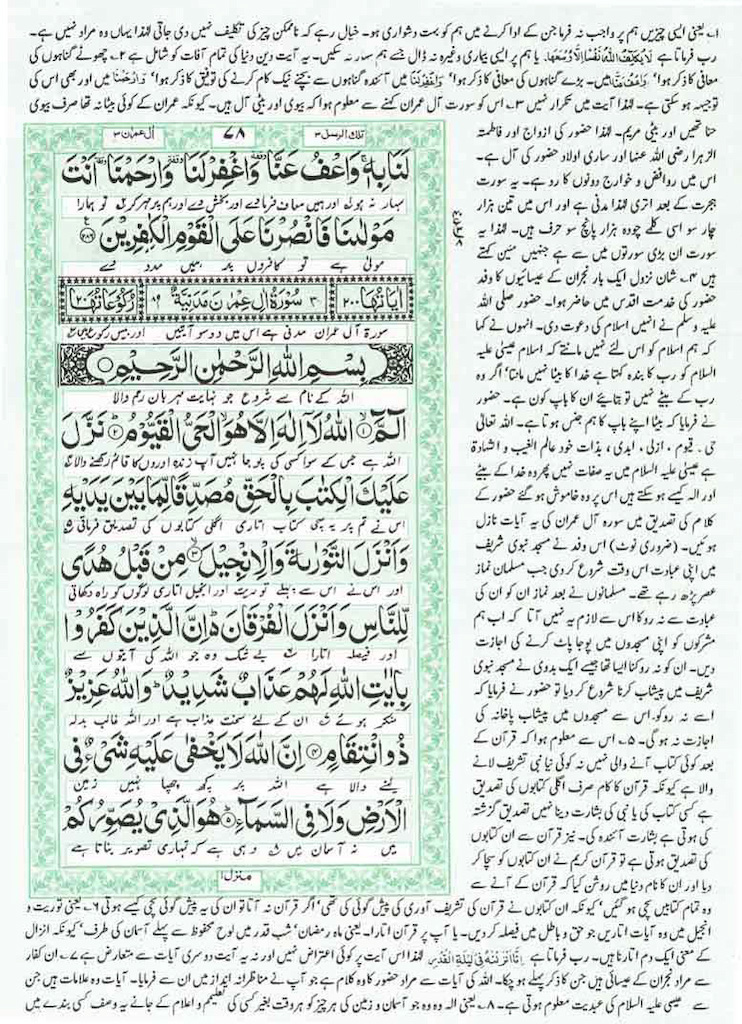 ۱۔ یعنی ایسی چیزیں ہم پر واجب نہ فرما جن کے ادا کرنے میں ہم کو بہت دشواری ہو۔ خیال رہے کہ ناممکن چیز کی تکلیف نہیں دی جاتی لہٰذا یہاں وہ مراد نہیں ہے۔
رب فرماتا ہے لَا یُکَلِّفُ اللّٰہُ نَفْسًا اِلَّا وُسْعَہَا۔ یا ہم پر ایسی بیماری وغیرہ نہ ڈال جسے ہم سہار نہ سکیں۔ یہ آیت دین دنیا کی تمام آفات کو شامل ہے ۲۔ چھوٹے گناہوں کی
معافی کا ذکر ہوا' وَاعْفُ عَنَّا میں۔ بڑے گناہوں کی معافی کا ذکر ہوا' وَاغْفِرْلَنَا میں آئندہ گناہوں سے بچنے نیک کام کرنے کی توفیق کا ذکر ہوا' وَارْحَمْنَا میں اور بھی اس کی
توجیہہ ہو سکتی ہے۔ لہٰذا آیت میں تکرار نہیں ۳۔ اس کو سورت آل عمران کہنے سے معلوم ہوا کہ بیوی اور بیٹی آل ہیں۔ کیونکہ عمران کے کوئی بیٹا نہ تھا صرف بیوی
حنا تھیں اور بیٹی مریم۔ لہٰذا حضور کی ازواج اور فاطمتہ
الزہرا رضی اللہ عنہا اور ساری اولاد حضور کی آل ہے۔
اس میں روافض و خوارج دونوں کا رد ہے۔ یہ سورت
ہجرت کے بعد اتری لہٰذا مدنی ہے اور اس میں تین ہزار
چار سو اسی کلمے چودہ ہزار پانچ سو حرف ہیں۔ لہٰذا یہ
سورت ان بڑی سورتوں میں سے ہے جنہیں مئین کہتے
ہیں ۴۔ شان نزول ایک بار نجران کے عیسائیوں کا وفد
حضور کی خدمت اقدس میں حاضر ہوا۔ حضور صلی اللہ
علیہ وسلم نے انہیں اسلام کی دعوت دی۔ انہوں نے کہا
کہ ہم اسلام کو اس لئے نہیں مانتے کہ اسلام عیسیٰ علیہ
السلام کو رب کا بندہ کہتا ہے خدا کا بیٹا نہیں مانتا' اگر وہ
رب کے بیٹے نہیں تو بتائیے ان کا باپ کون ہے۔ حضور
نے فرمایا کہ بیٹا اپنے باپ کا ہم جنس ہوتا ہے۔ اللہ تعالیٰ
حی۔ قیوم، ازلی، ابدی، بذات خود عالم الغیب و الشہادۃ
ہے عیسیٰ علیہ السلام میں یہ صفات نہیں پھر وہ خدا کے بیٹے
اور الہ کیسے ہو سکتے ہیں اس پر وہ خاموش ہو گئے حضور کے
کلام کی تصدیق میں سورہ آل عمران کی یہ آیات نازل
ہوئیں۔ (ضروری نوٹ) اس وفد نے مسجد نبوی شریف
میں اپنی عبادت اس وقت شروع کر دی جب مسلمان نماز
عصر پڑھ رہے تھے۔ مسلمانوں نے بعد نماز ان کو ان کی
عبادت سے نہ روکا اس سے لازم یہ نہیں آتا کہ اب ہم
مشرکوں کو اپنی مسجدوں میں پوجا پاٹ کرنے کی اجازت
دیں۔ ان کو نہ روکنا ایسا تھا جیسے ایک بدوی نے مسجد نبوی
شریف میں پیشاب کرنا شروع کر دیا تو حضور نے فرمایا کہ
اسے نہ روکو۔ اس سے مسجدوں میں پیشاب پاخانہ کی
اجازت نہ ہو گی۔ ۵۔ اس سے معلوم ہوا کہ قرآن کے
بعد کوئی کتاب آنے والی نہیں نہ کوئی نیا نبی تشریف لانے
والا ہے کیونکہ قرآن کا کام صرف اگلی کتابوں کی تصدیق
ہے کسی کتاب کی یا نبی کی بشارت دینا نہیں تصدیق گزشتہ
کی ہوتی ہے بشارت آئندہ کی۔ نیز قرآن سے ان کتابوں
کی تصدیق ہوتی ہے تو قرآن کریم نے ان کتابوں کو سچا کر
دیا اور ان کا نام دنیا میں روشن کیا کہ قرآن کے آنے سے
تلك الرسل ۳
۷۸
اٰل عمران ۳
لَنَا بِهٖ ۚ وَاعْفُ عَنَّا ۥ وَاغْفِرْ لَنَا ۥ وَارْحَمْنَا ۥ اَنْتَ
سہار نہ ہو اور ہمیں معاف فرمادے اور بخش دے اور ہم پر مہر کر تو ہمارا
مَوْلٰىنَا فَانْصُرْنَا عَلَى الْقَوْمِ الْكٰفِرِيْنَ ۝۲۸۶
مولیٰ ہے تو کافروں پر ہمیں مدد دے
اٰيَاتُهَا ۲۰۰ ۳ سُوْرَةُ اٰلِ عِمْرٰنَ مَدَنِيَّةٌ ۸۹ رُكُوْعَاتُهَا ۲۰
سورۃ آل عمران مدنی ہے اس میں دو سو آیتیں اور بیس رکوع ہیں
بِسْمِ اللّٰهِ الرَّحْمٰنِ الرَّحِيْمِ
اللہ کے نام سے شروع جو نہایت مہربان رحم والا
الٓمّٓ ۝۱ اللّٰهُ لَآ اِلٰهَ اِلَّا هُوَ الْحَيُّ الْقَيُّوْمُ ۝۲ نَزَّلَ
اللہ ہے جس کے سوا کسی کی پوجا نہیں آپ زندہ اوروں کا قائم رکھنے والا
عَلَيْكَ الْكِتٰبَ بِالْحَقِّ مُصَدِّقًا لِّمَا بَيْنَ يَدَيْهِ
اس نے تم پر یہ سچی کتاب اتاری اگلی کتابوں کی تصدیق فرماتی
وَاَنْزَلَ التَّوْرٰىةَ وَالْاِنْجِيْلَ ۝۳ مِنْ قَبْلُ هُدًى
اور اس نے اس سے پہلے توریت اور انجیل اتاری لوگوں کو راہ دکھاتی
لِّلنَّاسِ وَاَنْزَلَ الْفُرْقَانَ ۬ اِنَّ الَّذِيْنَ كَفَرُوْا
اور فیصلہ اتارا بے شک وہ جو اللہ کی آیتوں سے
بِاٰيٰتِ اللّٰهِ لَهُمْ عَذَابٌ شَدِيْدٌ ۭ وَاللّٰهُ عَزِيْزٌ
منکر ہوئے ان کے لئے سخت عذاب ہے اور اللہ غالب بدلہ
ذُو انْتِقَامٍ ۝۴ اِنَّ اللّٰهَ لَا يَخْفٰى عَلَيْهِ شَيْءٌ فِي
لینے والا ہے اللہ پر کچھ چھپا نہیں زمین
الْاَرْضِ وَلَا فِي السَّمَآءِ ۝۵ هُوَ الَّذِيْ يُصَوِّرُكُمْ
میں نہ آسمان میں وہی ہے کہ تمہاری تصویر بناتا ہے
منزل ۱
وہ تمام کتابیں سچی ہو گئیں' کیونکہ ان کتابوں نے قرآن کی تشریف آوری کی پیش گوئی کی تھی' اگر قرآن نہ آتا تو ان کی یہ پیش گوئی سچی کیسے ہوتی ۶۔ یعنی توریت و
انجیل میں وہ آیات اتاریں جو حق و باطل میں فیصلہ کر دیں۔ یا آپ پر قرآن اتارا۔ یعنی ماہ رمضان' شب قدر میں لوح محفوظ سے پہلے آسمان کی طرف' کیونکہ انزال
کے معنی ایک دم اتارنا ہیں۔ رب فرماتا ہے اِنَّا اَنْزَلْنٰہُ فِیْ لَیْلَةِ الْقَدْرِ لہٰذا اس آیت پر کوئی اعتراض نہیں اور نہ یہ آیت دوسری آیات سے متعارض ہے ۷۔ ان کفار
سے مراد نجران کے عیسائی ہیں جن کا ذکر پہلے ہو چکا۔ اللہ کی آیات سے مراد حضور کا وہ کلام ہے جو آپ نے مناظرانہ انداز میں ان سے فرمایا۔ آیات وہ علامات ہیں جن
سے عیسیٰ علیہ السلام کی عبدیت معلوم ہوتی ہے۔ ۸۔ یعنی الہ وہ وہ جو آسمان و زمین کی ہر چیز کو ہر وقت بغیر کسی کی تعلیم و اعلام کے جانے یہ وصف کسی بندے میں